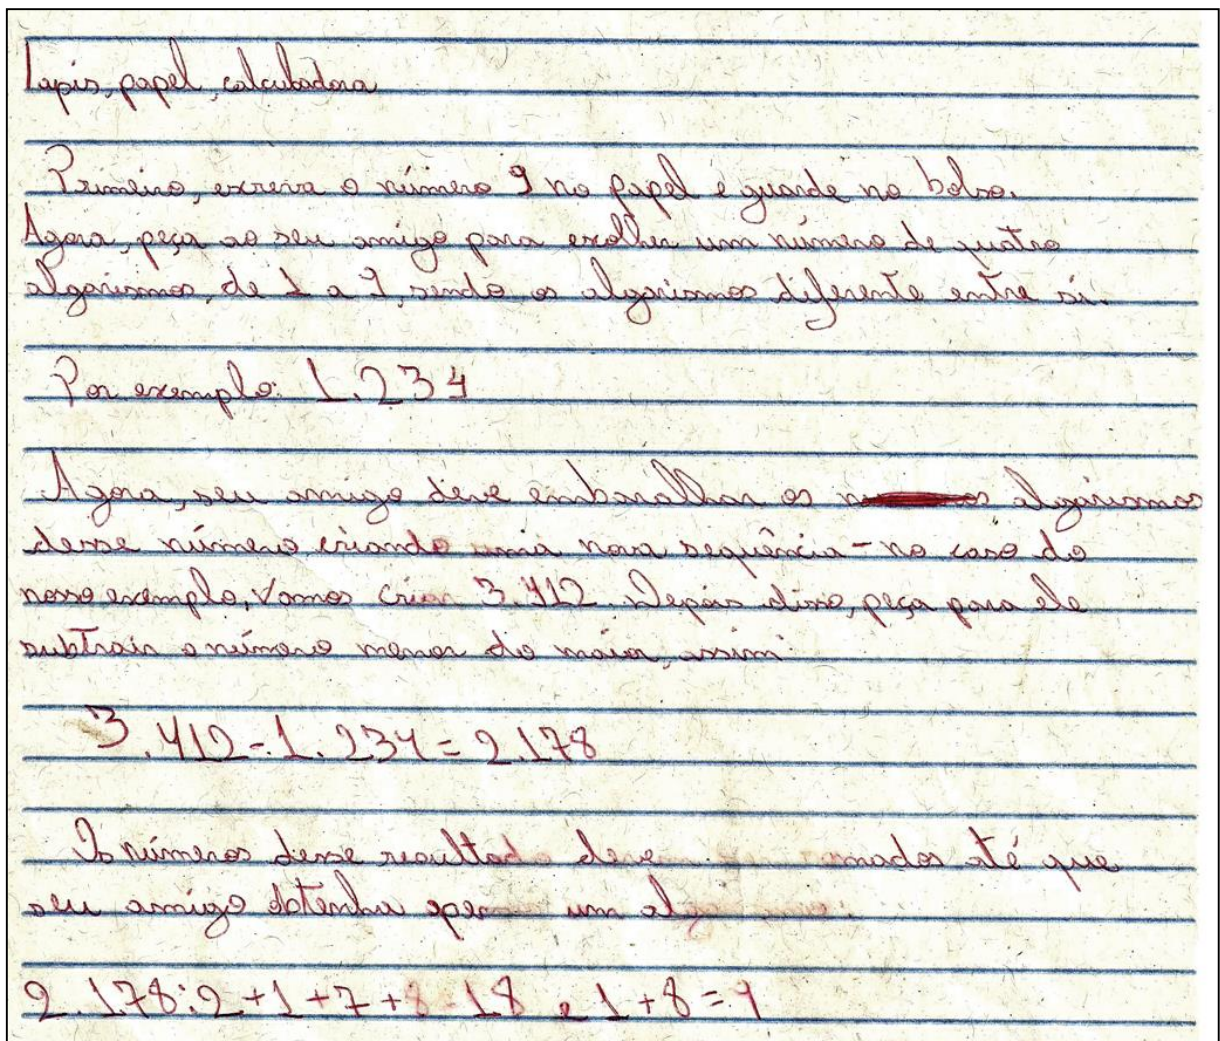 Lapis, papel, calculadora
Primeiro, escreva o número 9 no papel e guarde no bolso.
Agora, peça ao seu amigo para escolher um número de quatro
algarismos, de 1 a 9, sendo os algarismos diferente entre si.
Por exemplo: 1.234
Agora, seu amigo deve embaralhar os algarismos
desse número criando uma nova sequência - no caso do
nosso exemplo, vamos criar 3.412. Depois disso, peça para ele
subtrair o número menor do maior, assim
3.412-1.234=2.178
Os números desse resultado devem mados até que
seu amigo obtenha apenas um
2.178:2+1+7+8=18 e 1+8=9